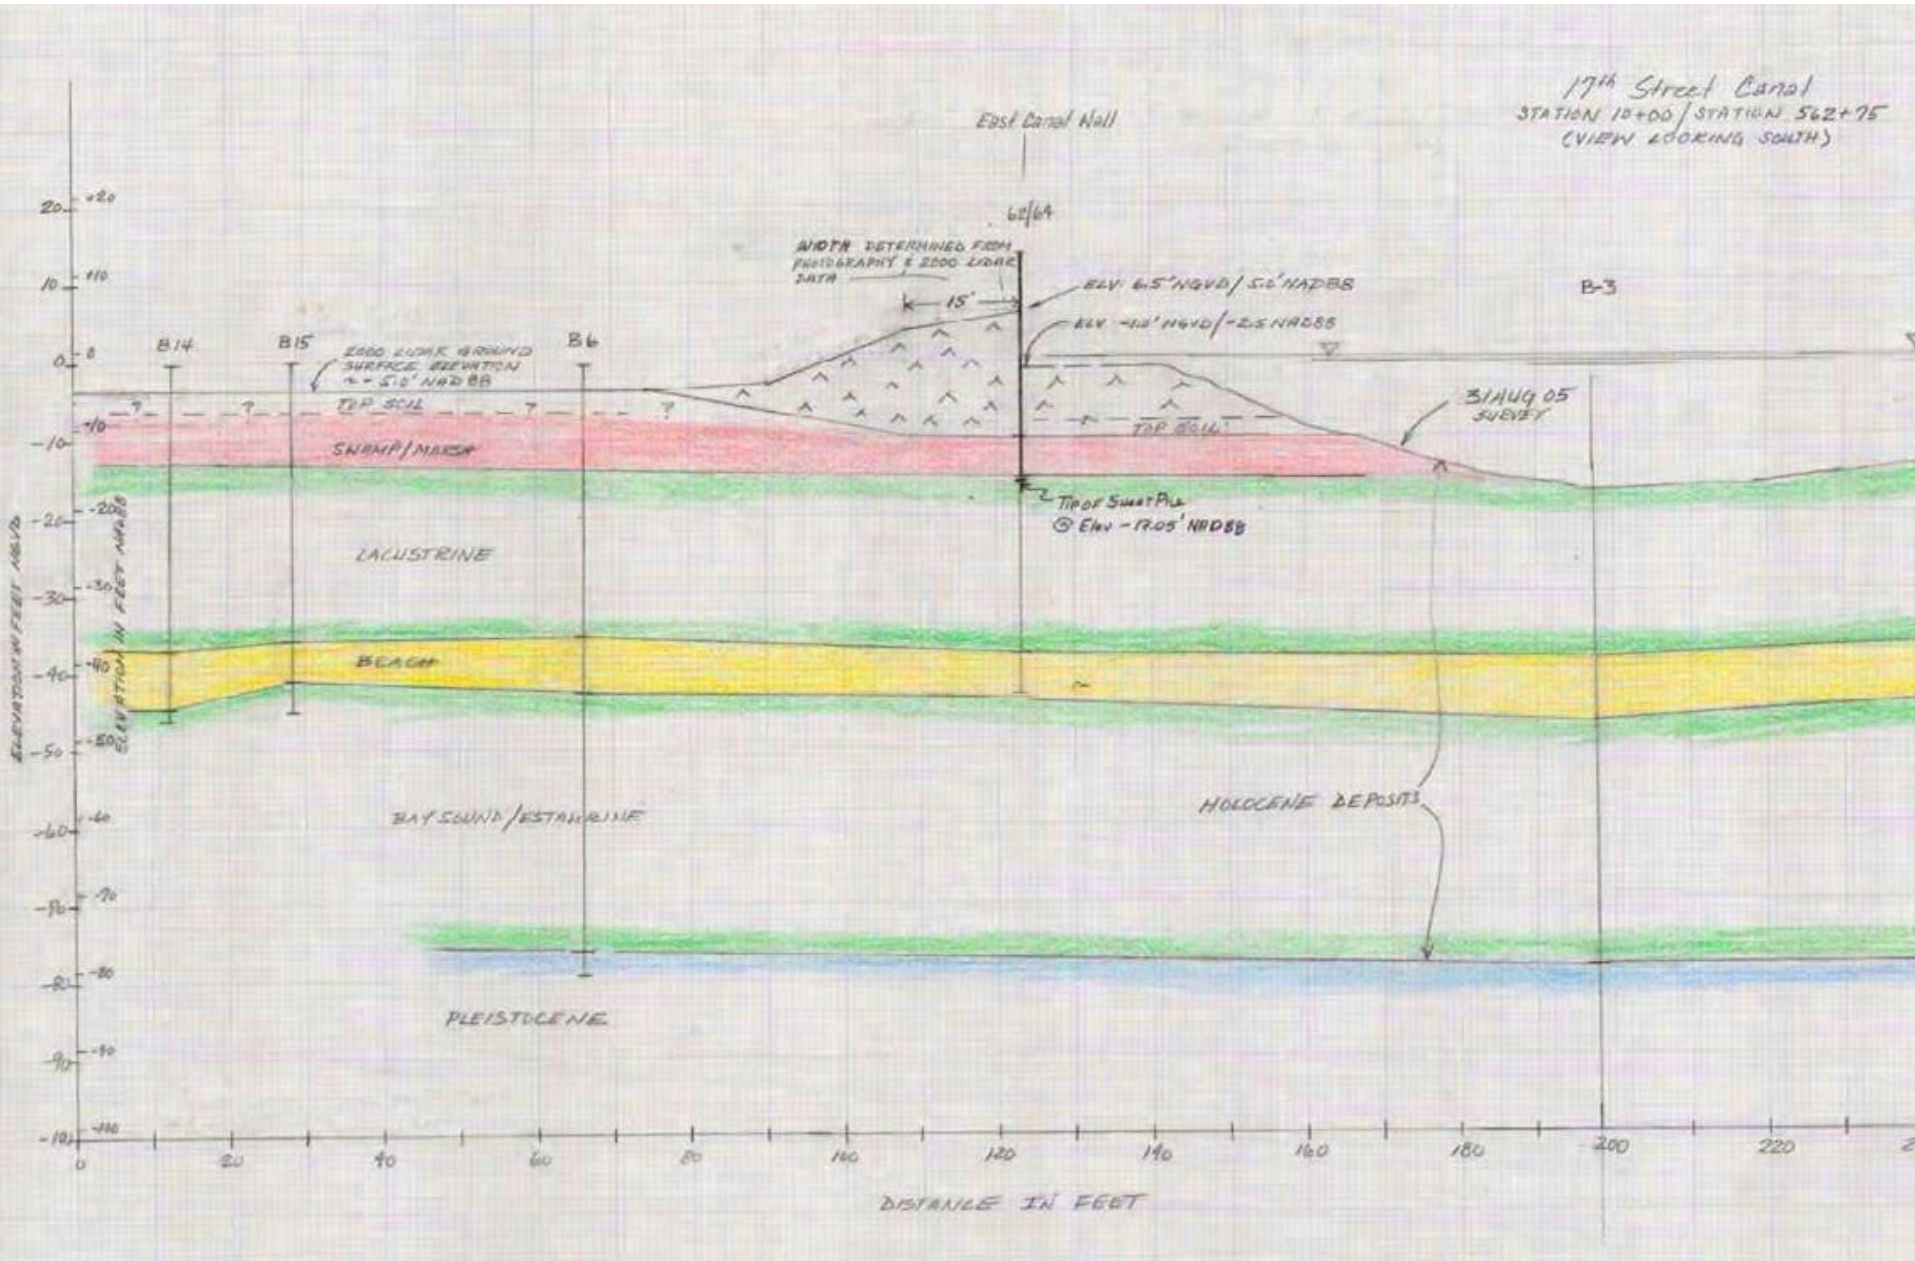 17th Street Canal
STATION 10+00/STATION 562+75
(VIEW LOOKING SOUTH)
East Canal Wall
62/64
WIDTH DETERMINED FROM
PHOTOGRAPHY & 2000 LIDAR
DATA
15'
ELV. 6.5' NGVD/5.0' NAD88
ELV -1.0' NGVD/-2.5 NAD88
B-3
B14
B15
B6
2000 LIDAR GROUND
SURFACE ELEVATION
~ -5.0' NAD 88
? ? ? ?
TOP SOIL
TOP SOIL
31 AUG 05
SURVEY
SWAMP/MARSH
TIP OF SHEET PILE
@ Elev -17.05' NAD88
LACUSTRINE
BEACH
BAY SOUND/ESTAURINE
HOLOCENE DEPOSITS
PLEISTOCENE
ELEVATION IN FEET NGVD
20
10
0
-10
-20
-30
-40
-50
-60
-80
-90
ELEVATION IN FEET NAD88
+20
+10
0
-10
-20
-30
-40
-50
-60
-70
-80
-90
-100
0 20 40 60 80 100 120 140 160 180 200 220
DISTANCE IN FEET